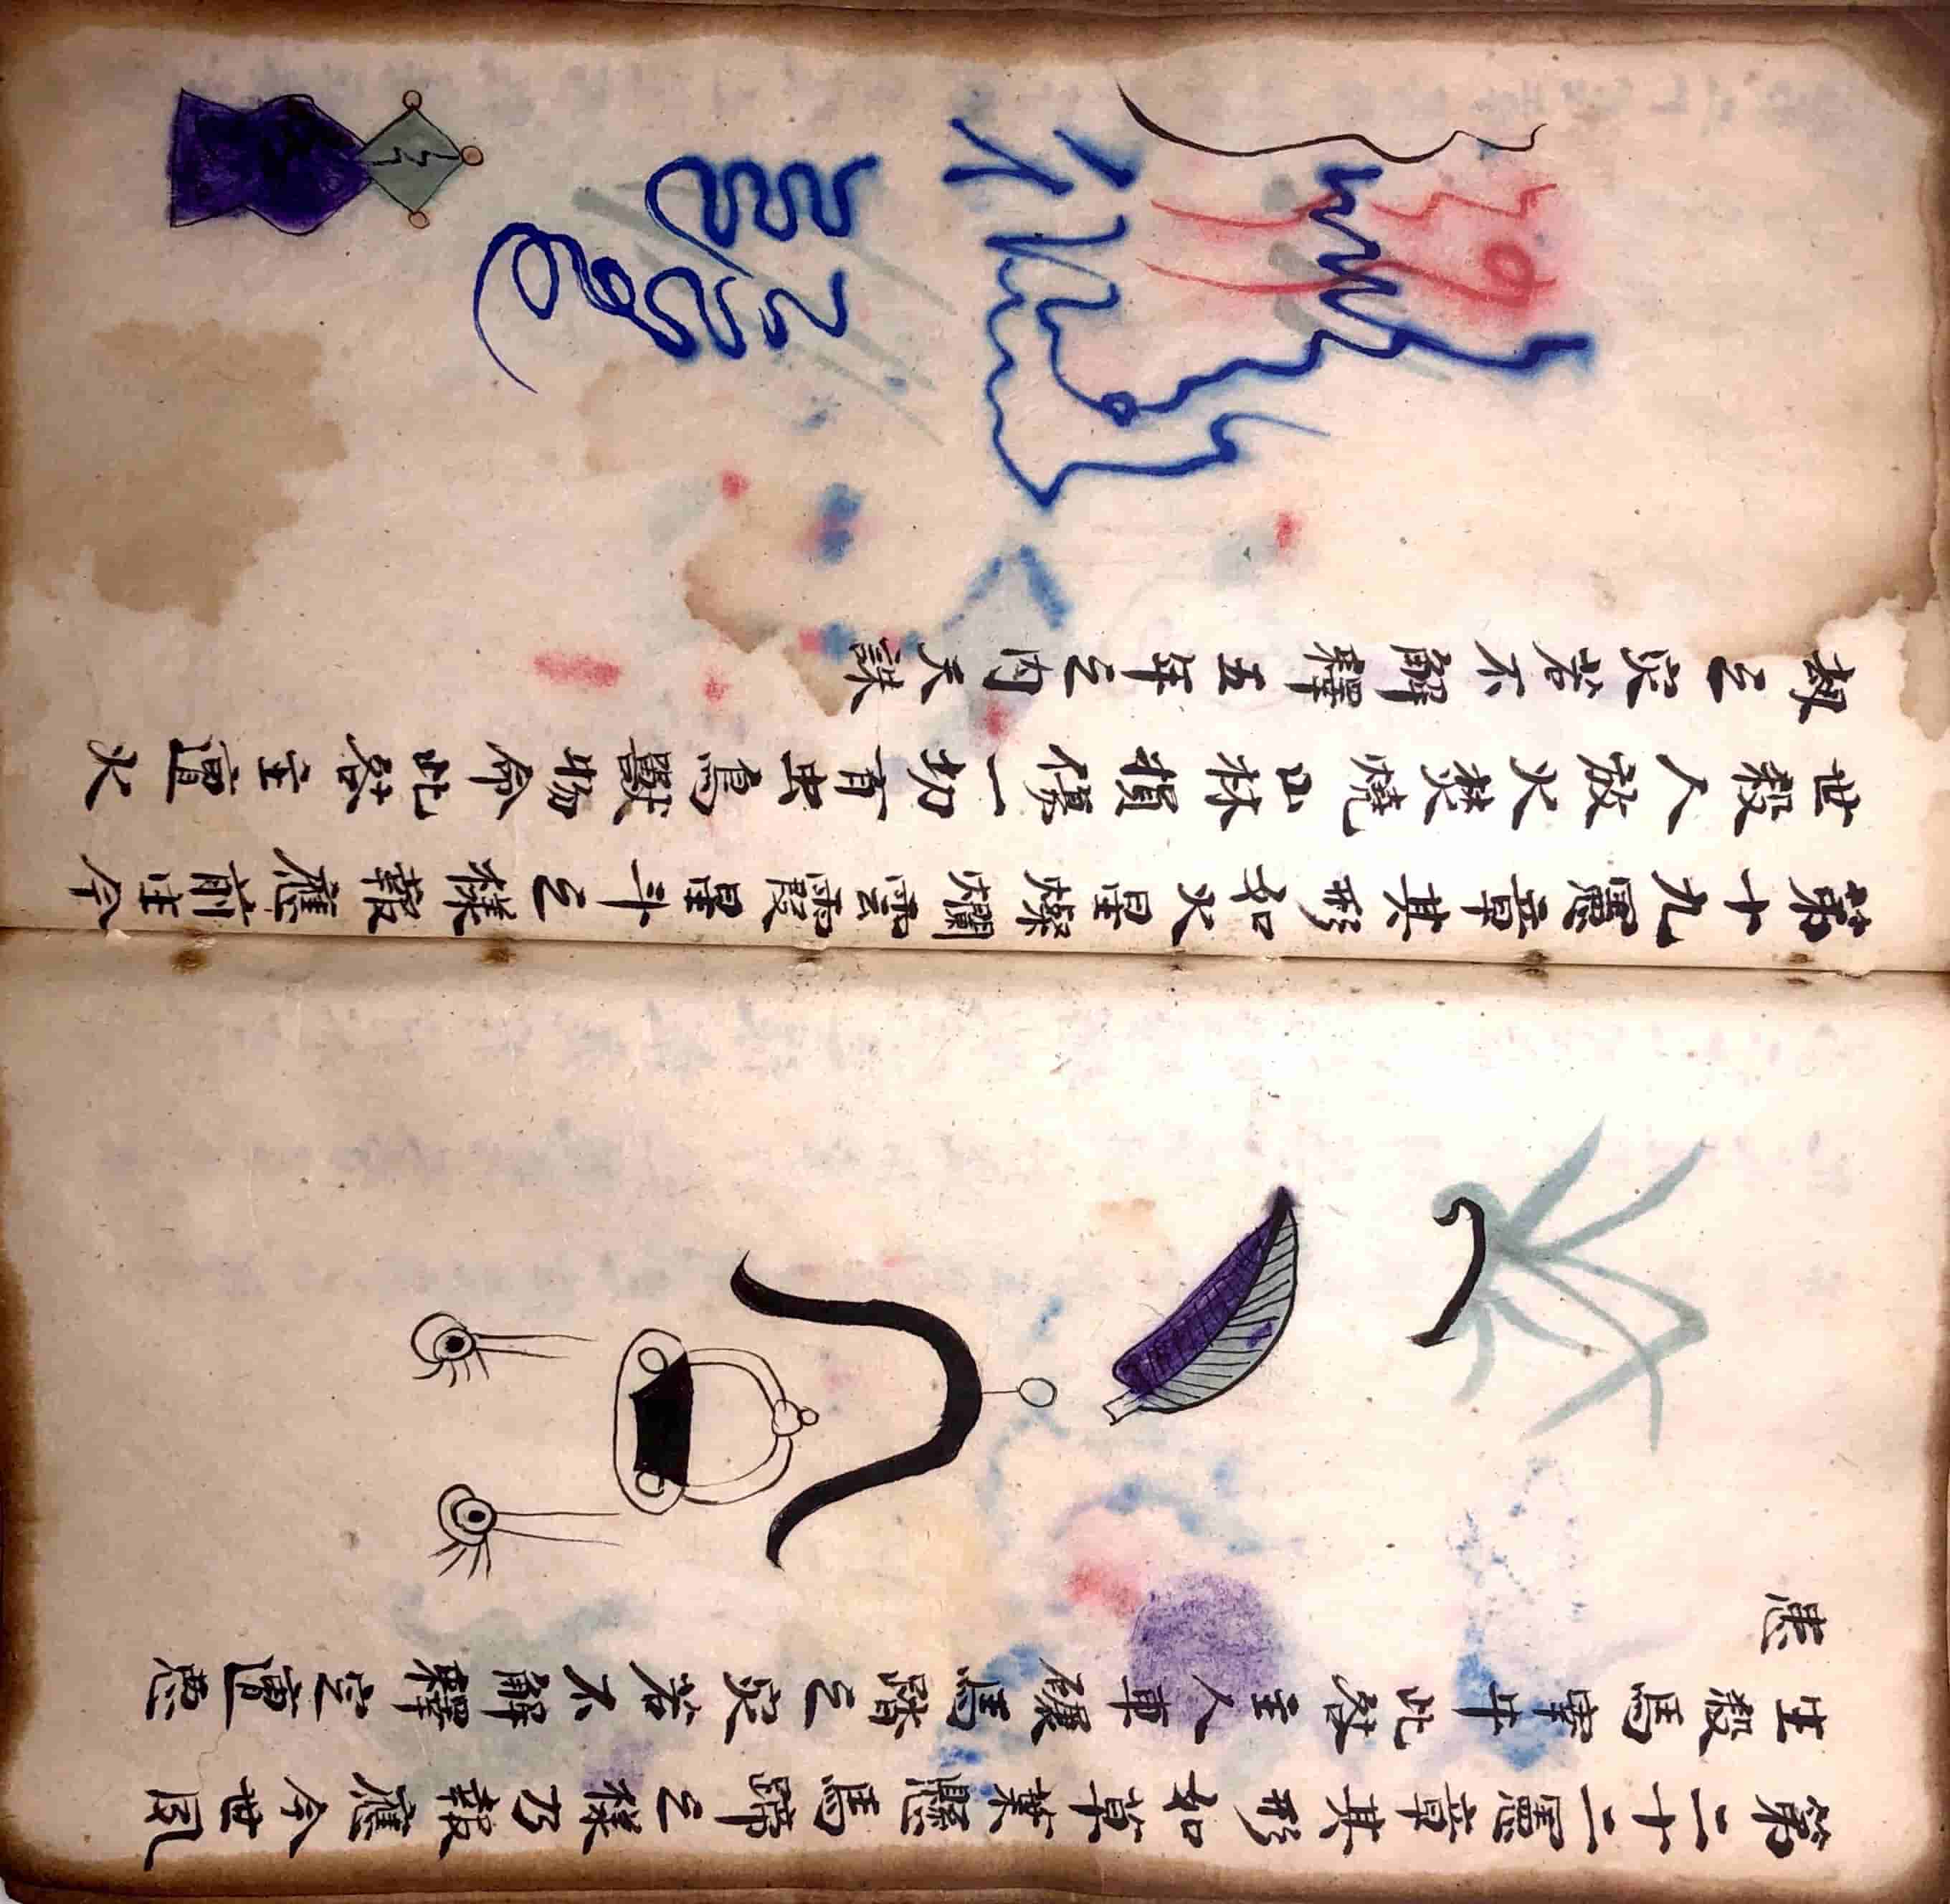 第二十二章其形如草葉懸馬蹄之樣乃報應今世夙
生殺馬宰牛此咎主人車碾馬踏之災若不解釋定遭惡
患
第十九章其形如火星燦爛雲霞星斗之樣報應前生今
世殺人放火焚燒山林損傷一切有虫鳥獸物命此咎主遭火
劫之災若不解釋五年之内天誅